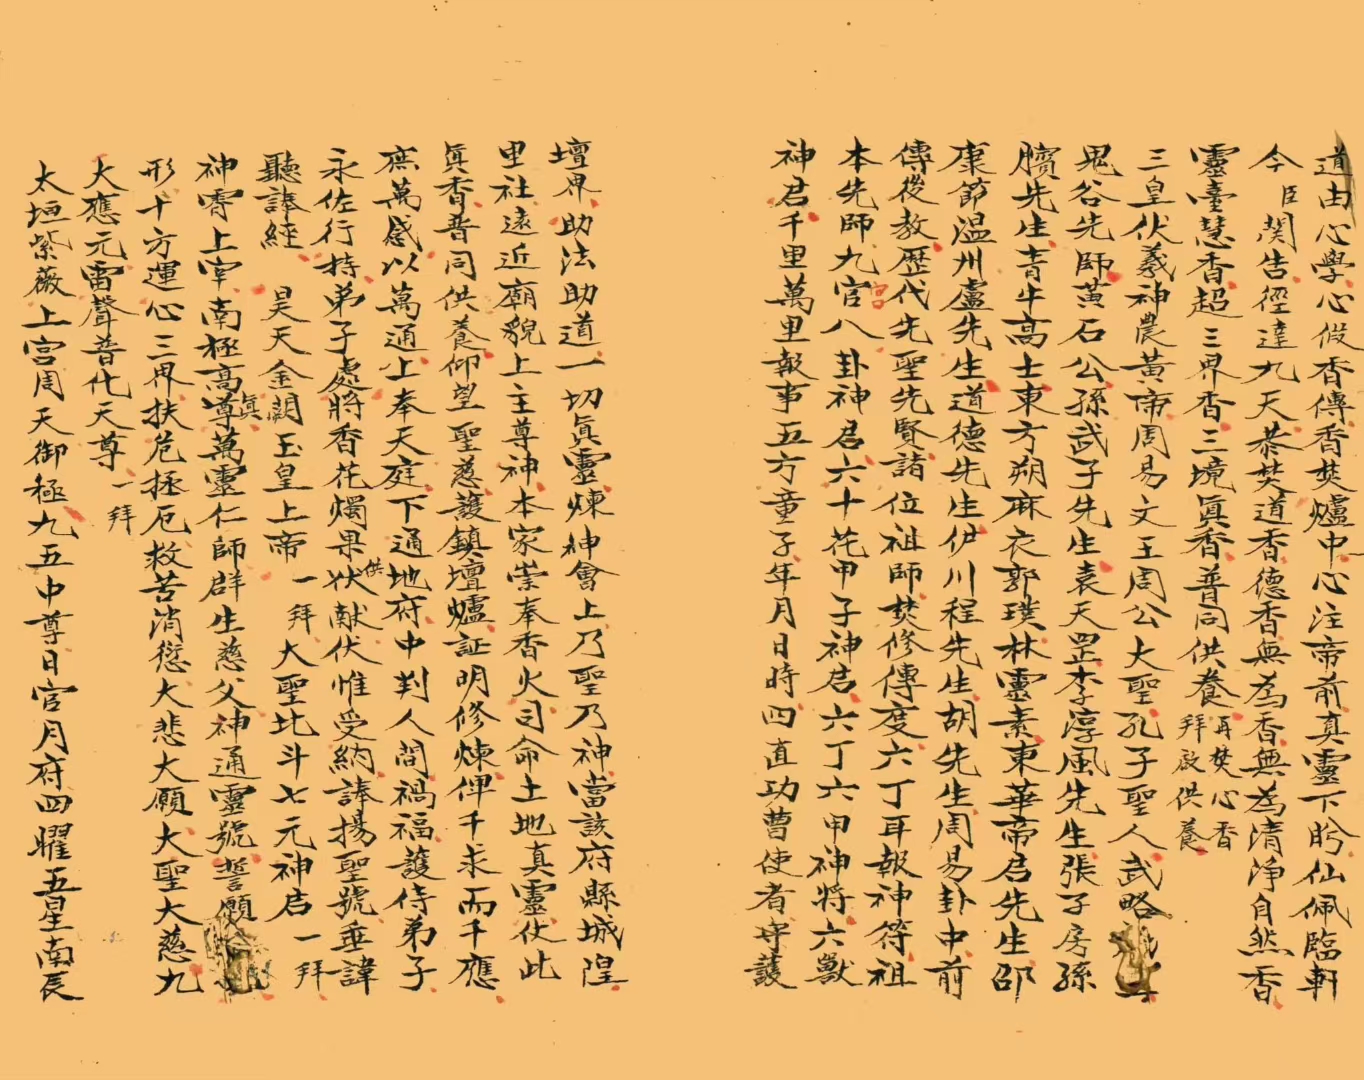 道由心學心假香傳香焚爐中心注帝前真靈下盻仙佩臨軒
今臣関告徑達九天恭焚道香德香無為香無為清淨自然香
靈臺慧香超三界香三境眞香普同供養再焚心香拜啟供養
三皇伏羲神農黃帝周易文王周公大聖孔子聖人武略
鬼谷先師黃石公孫武子先生袁天罡李淳風先生張子房孫
臏先生青牛高士東方朔麻衣郭璞林靈素東華帝君先生邵
康節溫州盧先生道德先生伊川程先生胡先生周易卦中前
傳後教歷代先聖先賢諸位祖師焚修傳度六丁耳報神符祖
本先師九宮八卦神君六十花甲子神君六丁六甲神將六獸
神君千里萬里報事五方童子年月日時四直功曹使者守護
壇界助法助道一切眞靈煉神會上乃聖乃神當該府縣城隍
里社遠近廟貌上主尊神本家崇奉香火司命土地真靈仗此
眞香普同供養仰望聖慈護鎮壇爐証明修煉俾千求而千應
庶萬感以萬通上奉天庭下通地府中判人間禍福護侍弟子
永佐行持弟子處將香花燭果狀供献伏惟受納諱揚聖號垂諱
聽諱經 昊天金闕玉皇上帝一拜大聖北斗七元神君一拜
神霄上宰南極高尊真萬靈仁師群生慈父神通靈號誓願
形十方運心三界扶危拯厄救苦消愆大悲大願大聖大慈九
大應元雷聲普化天尊一拜
太垣紫薇上宮周天御極九五中尊日宮月府四曜五星南辰